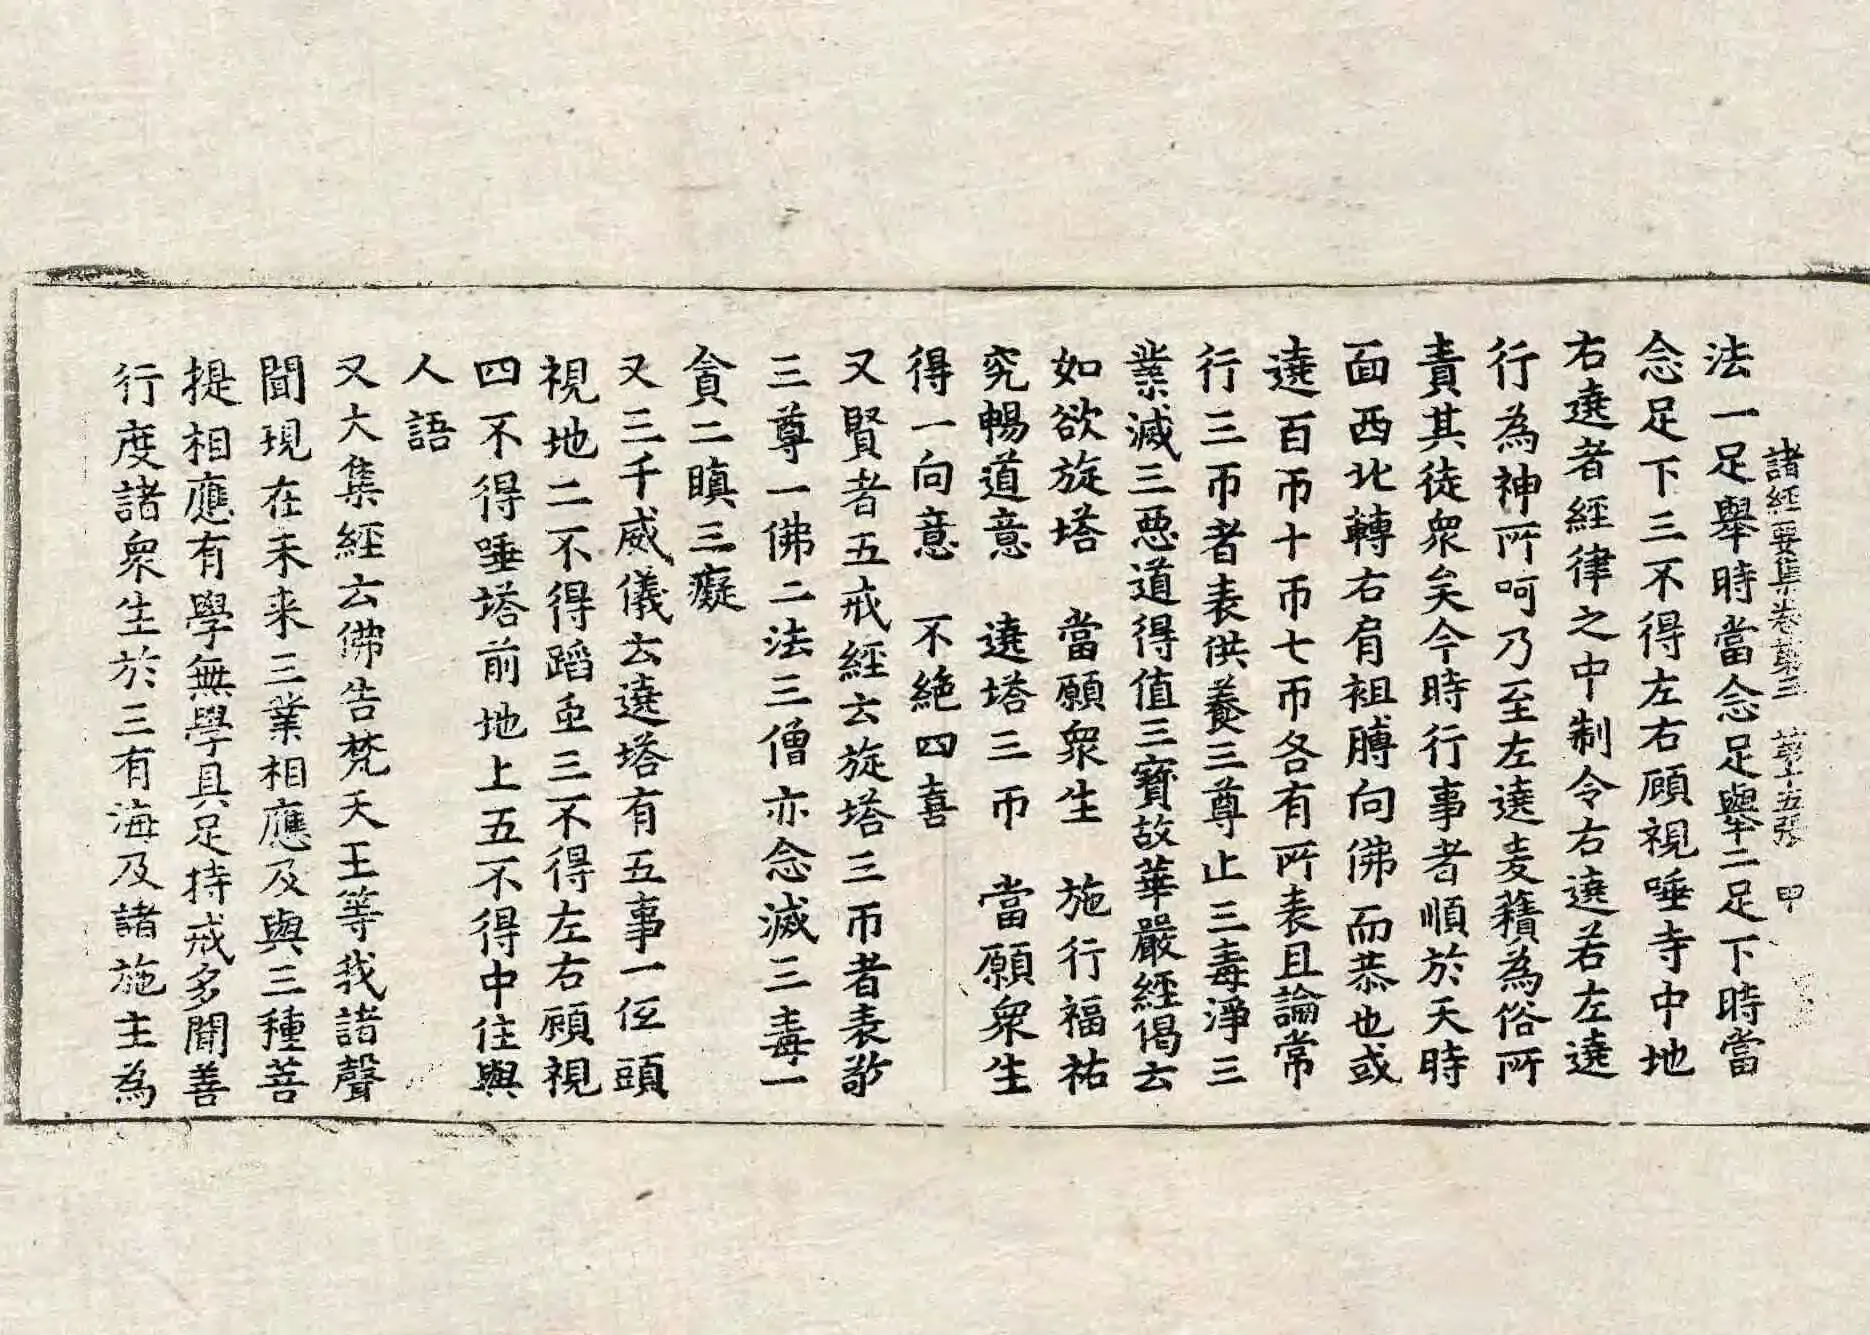 諸經要集卷第三　第十五張　甲
法一足舉時當念足舉二足下時當
念足下三不得左右顧視唾寺中地
右遶者經律之中制令右遶若左遶
行為神所呵乃至左遶麦𧂐為俗所
責其徒衆矣今時行事者順於天時
面西北轉右肩袒膊向佛而恭也或
遶百帀十帀七帀各有所表且論常
行三帀者表供養三尊止三毒淨三
業滅三惡道得值三寶故華嚴經偈云
如欲旋塔　當願衆生　施行福祐
究暢道意　遶塔三帀　當願衆生
得一向意　不絕四喜
又賢者五戒經云旋塔三帀者表敬
三尊一佛二法三僧亦念滅三毒一
貪二瞋三癡
又三千威儀云遶塔有五事一低頭
視地二不得蹈虫三不得左右顧視
四不得唾塔前地上五不得中住與
人語
又大集經云佛告梵天王等我諸聲
聞現在未来三業相應及與三種菩
提相應有學無學具足持戒多聞善
行度諸衆生於三有海及諸施主為